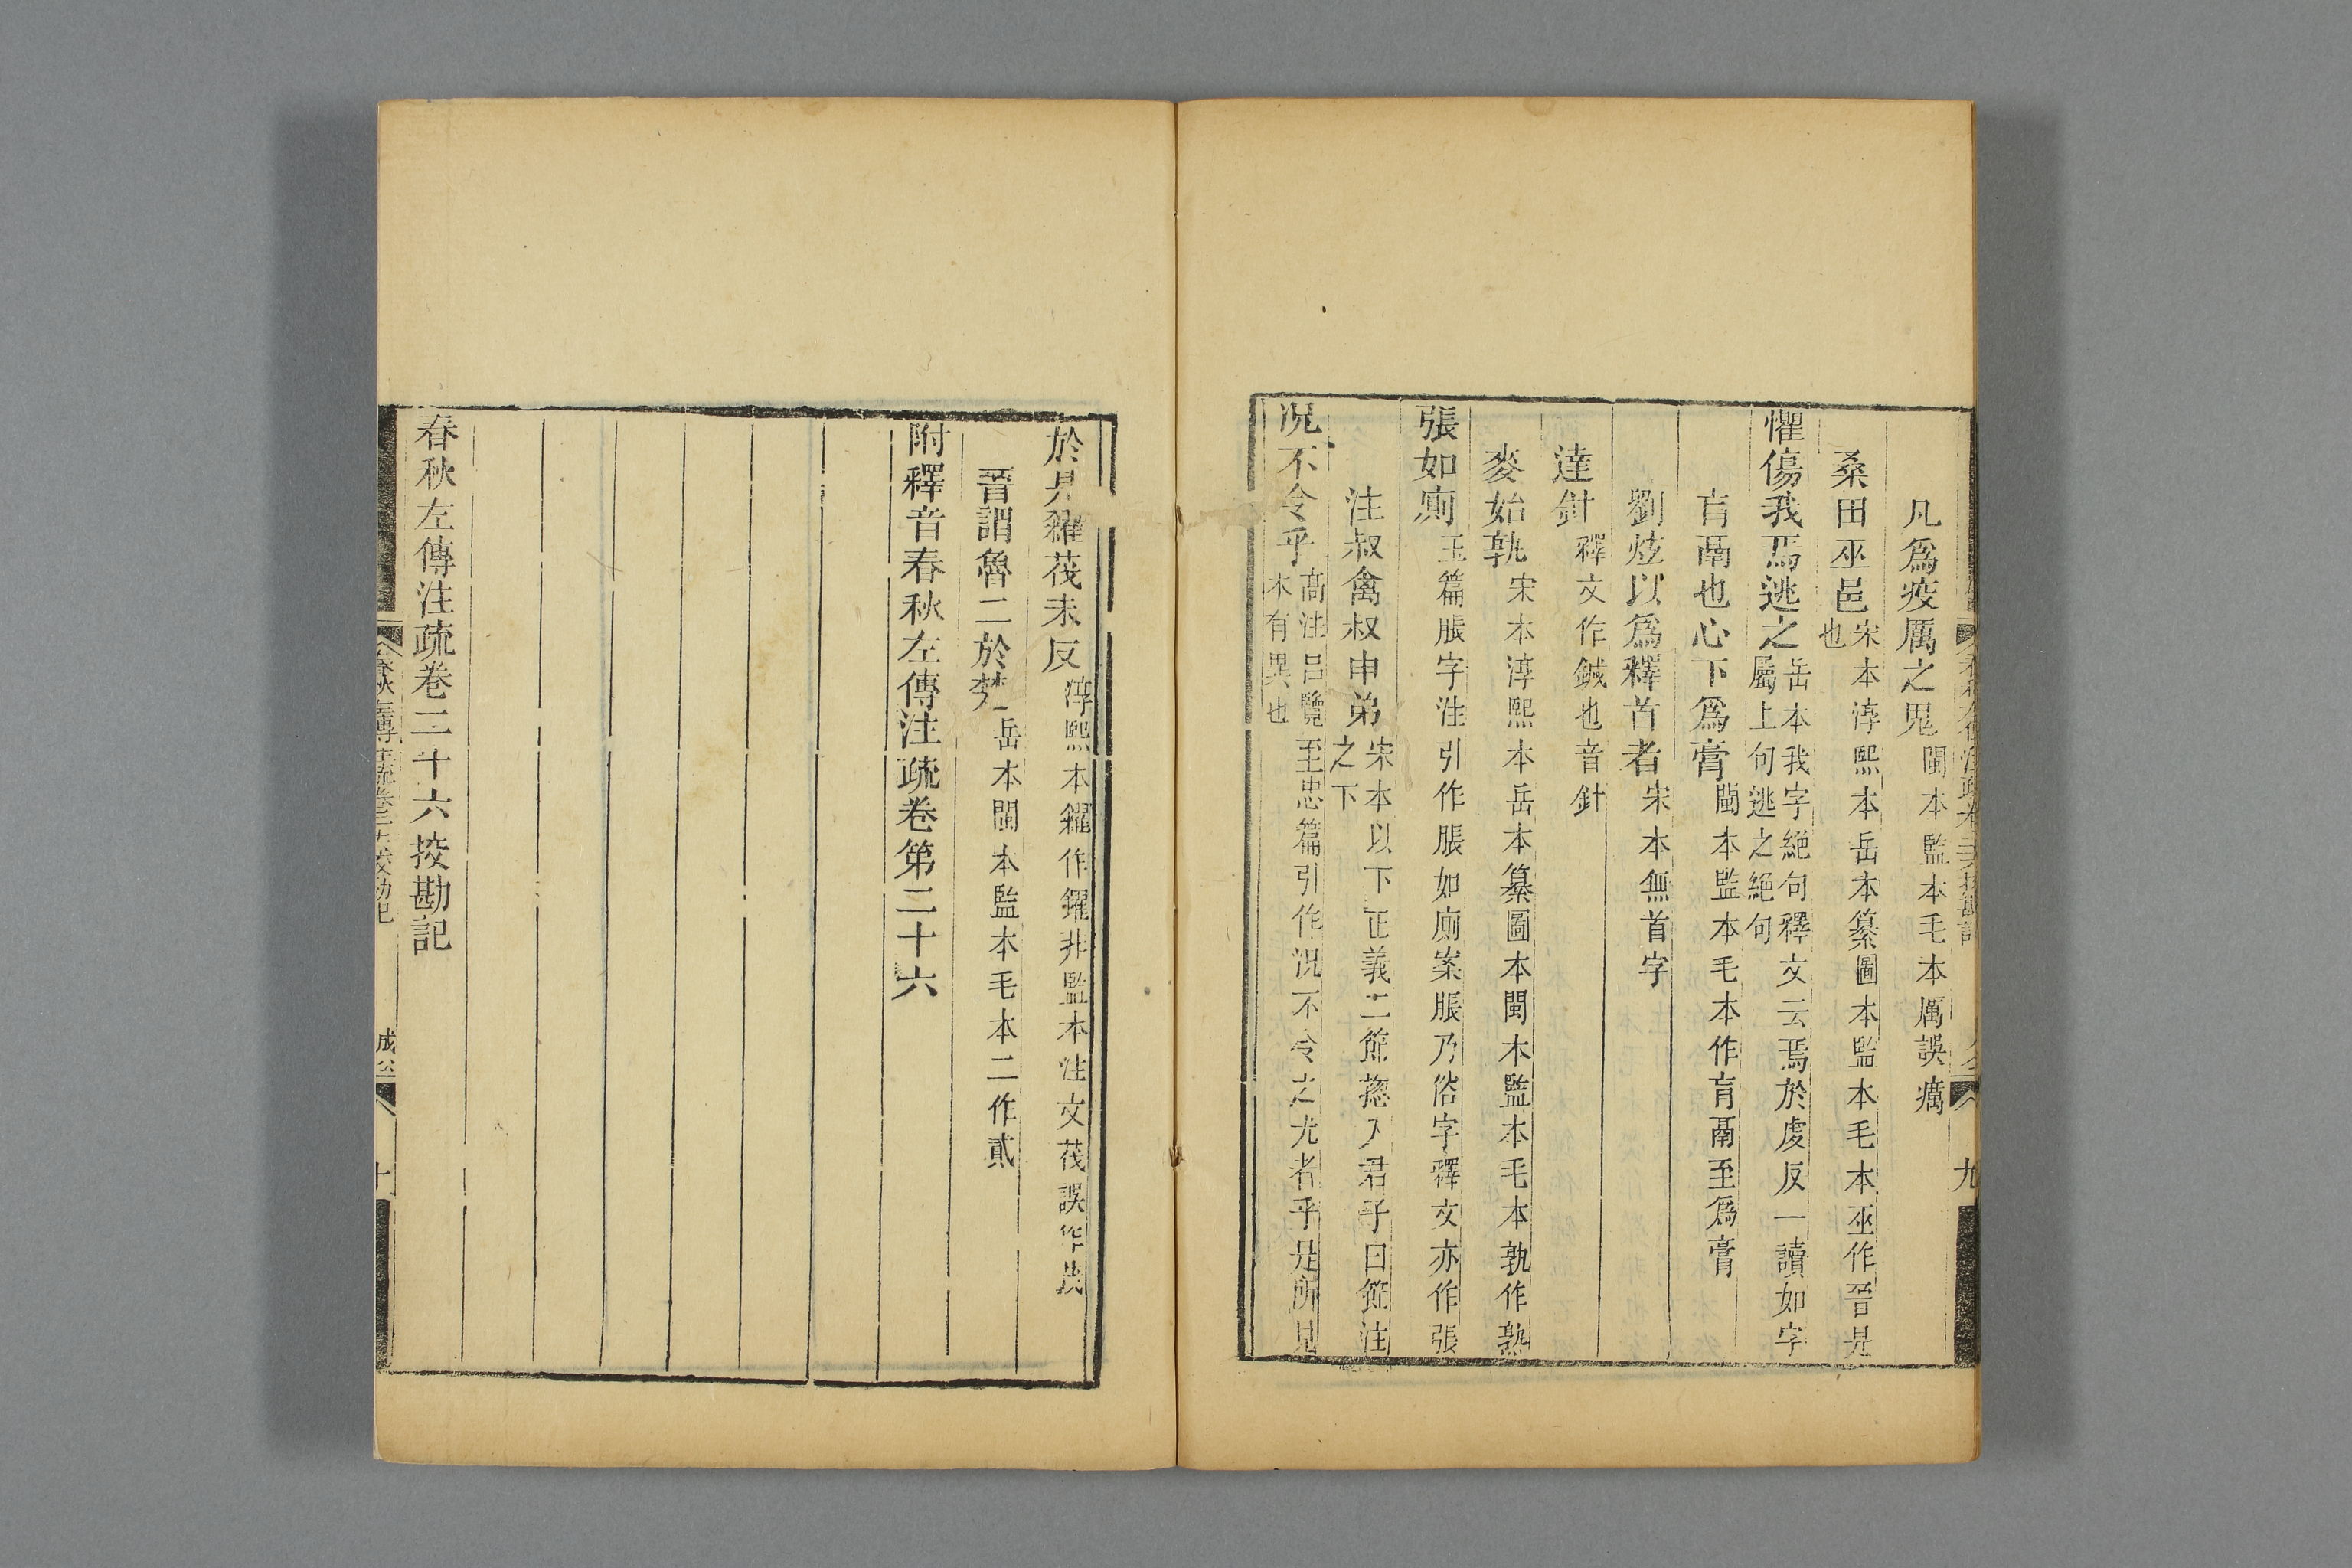 凡爲疫厲之鬼閩本監本毛本厲誤癘
桑田巫邑宋本淳熙本岳本纂圖本監本毛本巫作晉是
也
懼傷我焉逃之岳本我字絕句釋文云焉於虔反一讀如字
屬上句逃之絕句
肓鬲也心下爲膏閩本監本毛本作肓鬲至爲膏
劉炫以爲釋首者宋本無首字
達針釋文作鍼也音針
麥始孰宋本淳熙本岳本纂圖本閩本監本毛本孰作熟
張如廁玉篇脹字注引作脹如廁案脹乃俗字釋文亦作張
注叔禽叔申弟宋本以下正義二節揔入君子曰節注
之下
况不令乎高注呂覽至忠篇引作況不令之尤者乎是所見
本有異也
春秋左傳注疏卷二十六挍勘記
九
於是糴茷未反淳熙本糴作鑃非監本注文茷誤作茂
晉謂魯二於楚岳本閩本監本毛本二作貳
附釋音春秋左傳注疏卷第二十六
春秋左傳注疏卷二十六挍勘記
春秋左傳注疏卷二十六挍勘記
成公
十